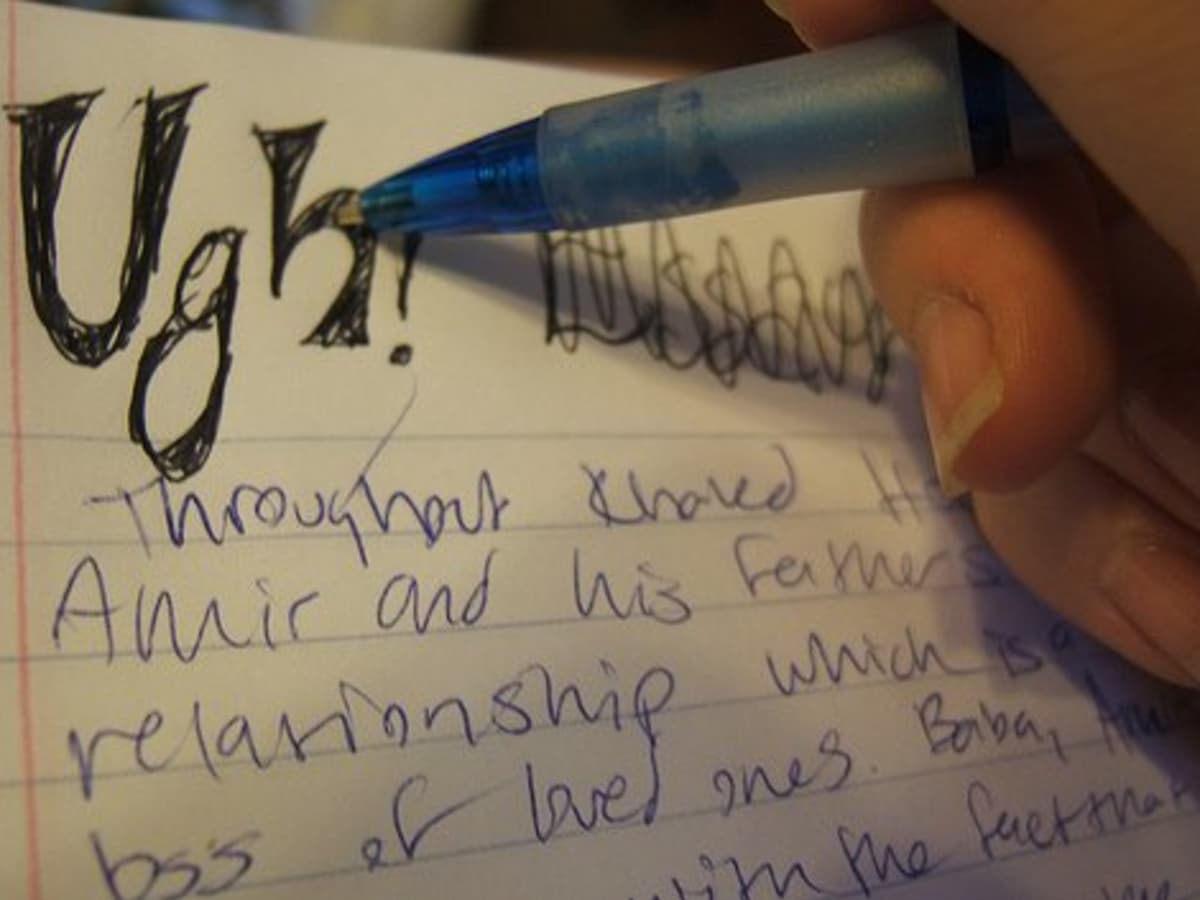 Ugh!
Throughout Khaled
Amir and his Fathers
relationship which is a
loss of loved ones. Baba,
with the fact that